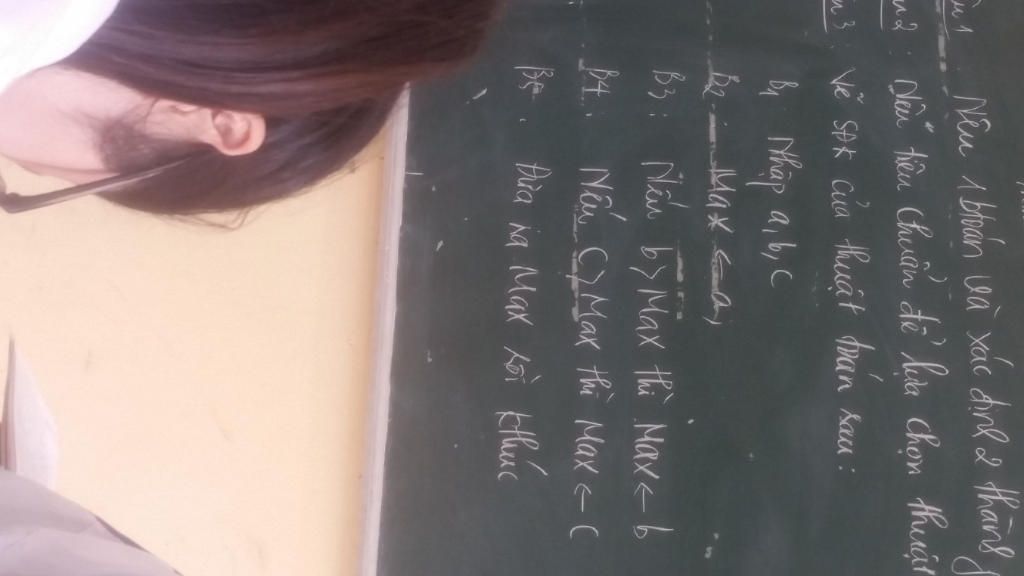 Nêu 1 btoán và xác định 2 thàng
Nêu tiêu chuẩn để lựa chọn thuật
Vẽ SĐK của thuật toán sau:
B1 Nhập a, b, c
B2. Max ← a,
B3: Nếu b > Max thì Max ← b
B4. Nếu C > Max thì Max ← C
B5. Đưa ra Max rồi kthúc